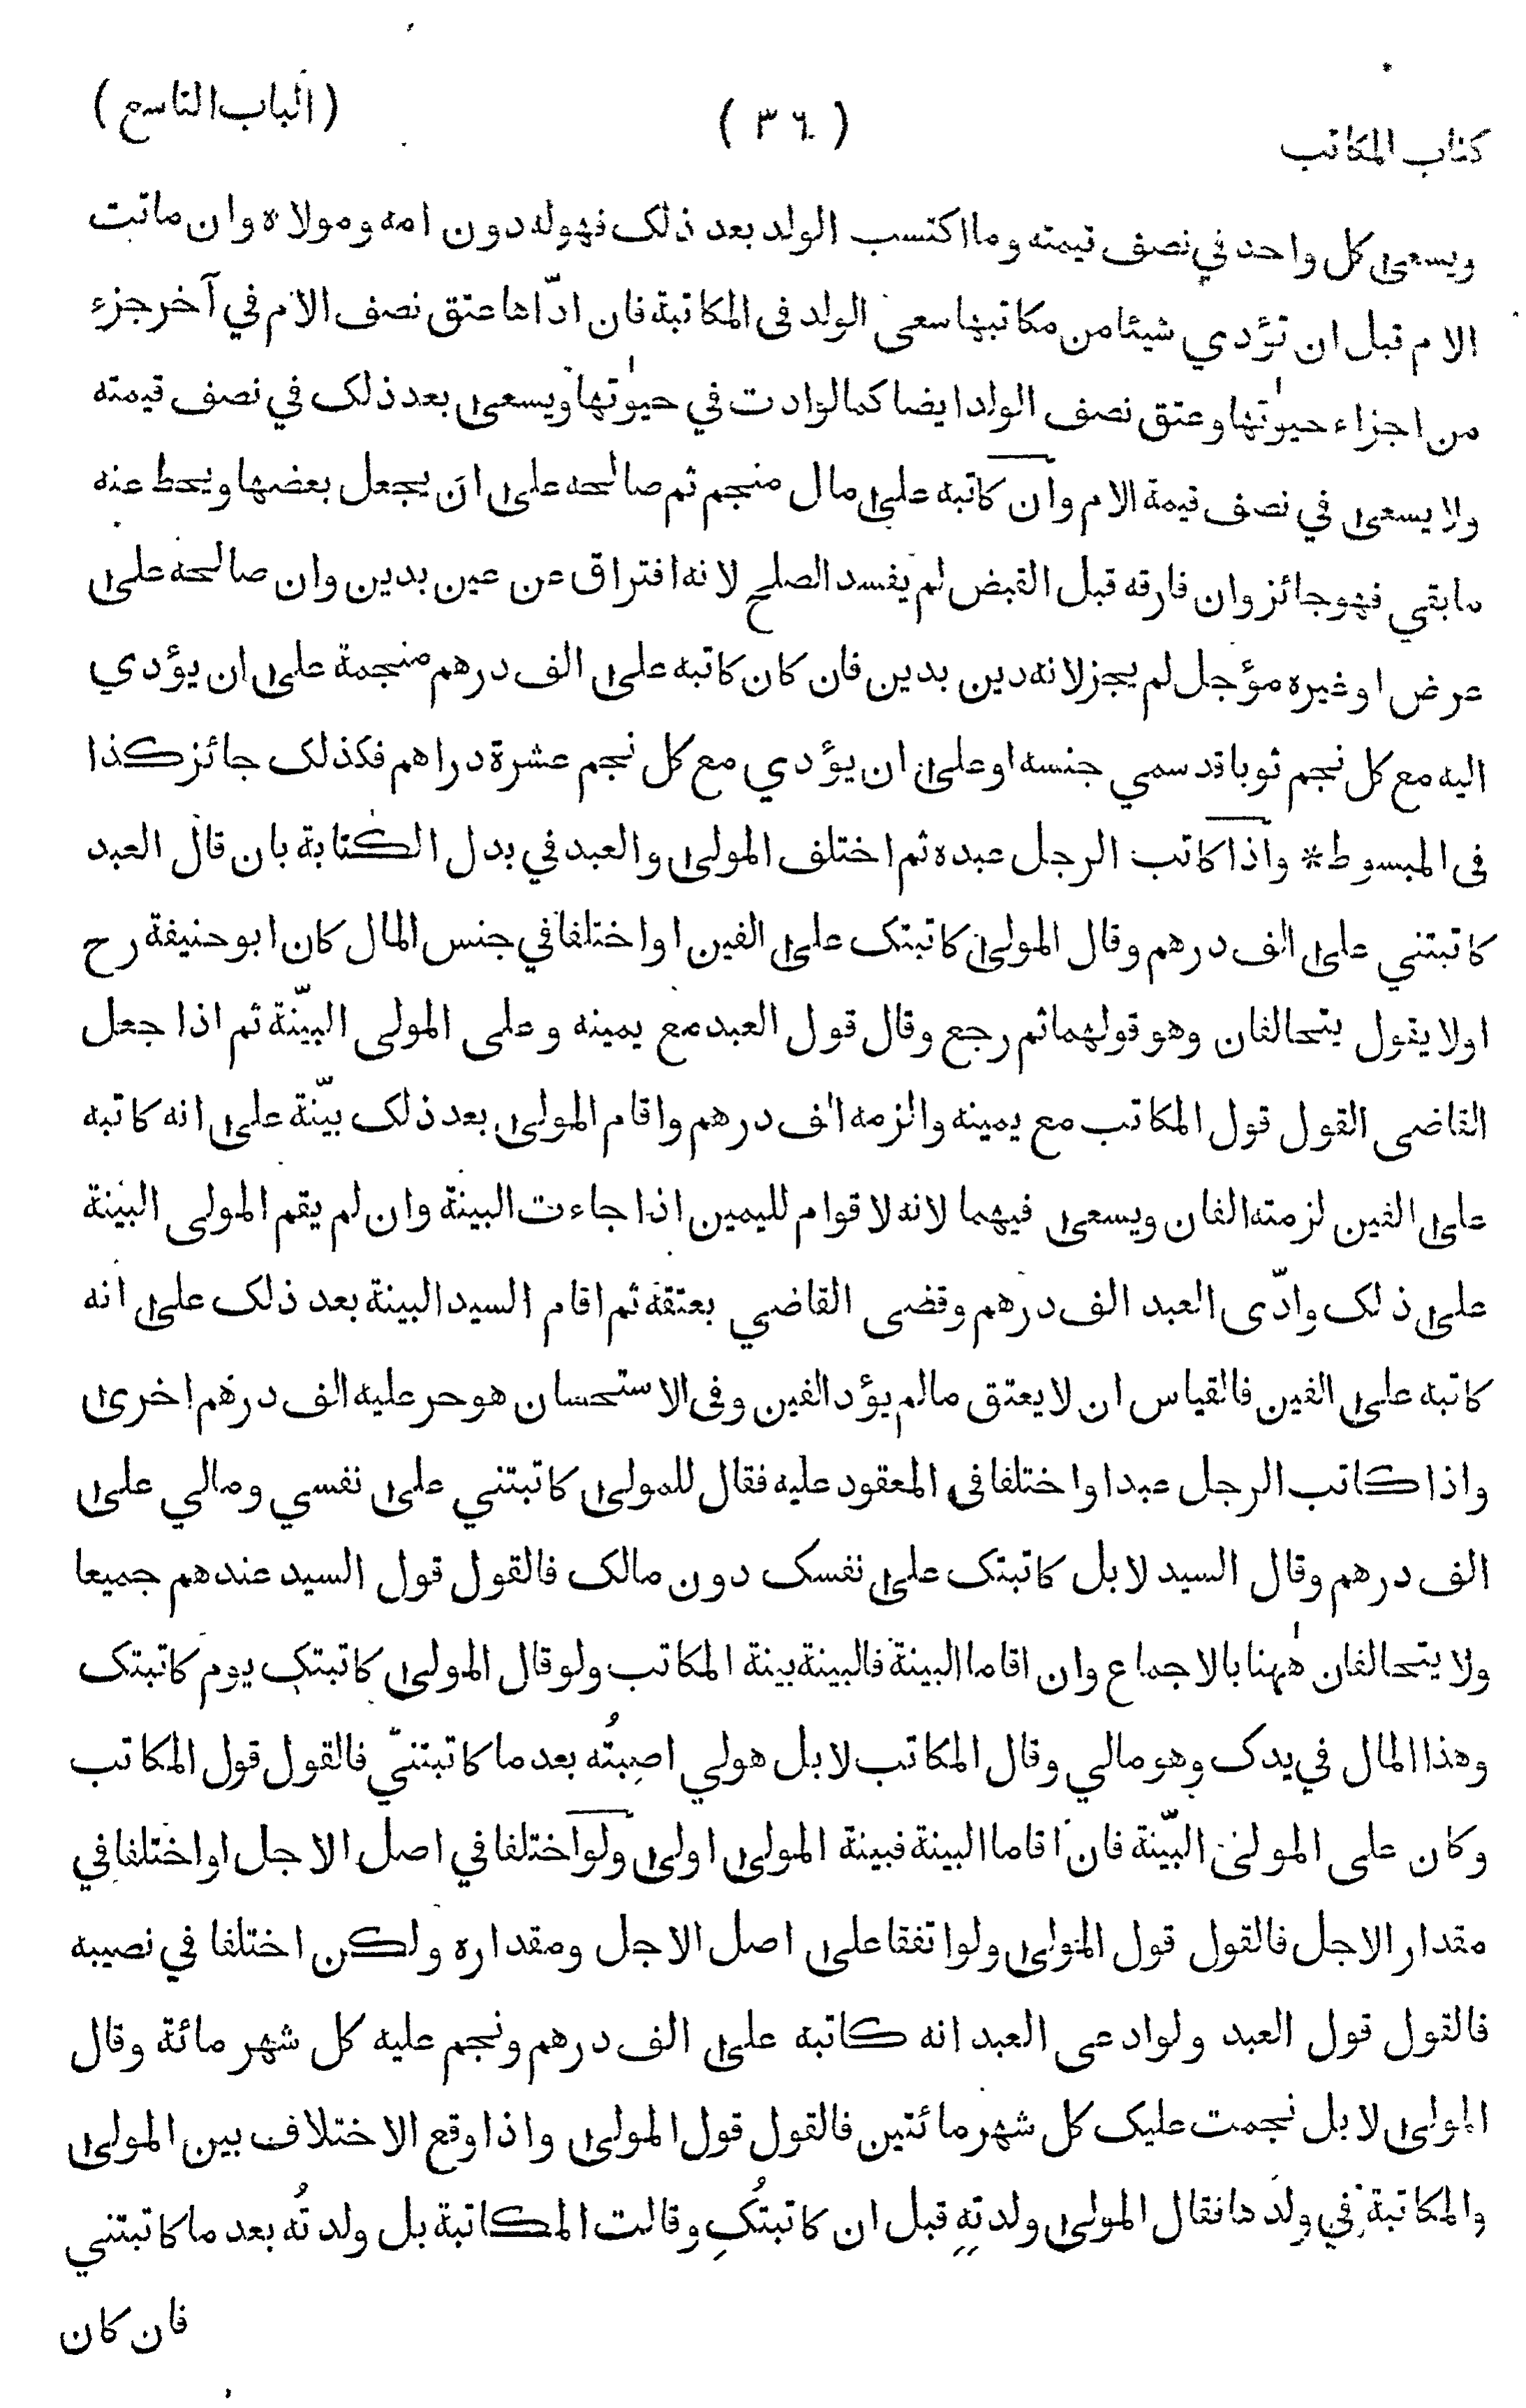 كتاب المكاتب
( ٣٦ )
( الباب التاسع )
ويسعى كل واحد في نصف قيمته وما اكتسب الولد بعد ذلك فهو له دون امه ومولاه وان ماتت
الام قبل ان تؤدي شيئا من مكاتبها سعى الولد فى المكاتبة فان ادّاها عتق نصف الام في آخر جزء
من اجزاء حيوٰتها وعتق نصف الولد ايضا كما لوادت في حيوٰتها ويسعى بعد ذلك في نصف قيمته
ولا يسعى في نصف قيمة الام وان كاتبه على مال منجم ثم صالحه على ان يجعل بعضها ويحط عنه
ما بقي فهو جائز وان فارقه قبل القبض لم يفسد الصلح لانه افتراق عن عين بدين وان صالحه على
عرض او غيره مؤجل لم يجز لانه دين بدين فان كان كاتبه على الف درهم منجمة على ان يؤدي
اليه مع كل نجم ثوبا قد سمي جنسه او على ان يؤدي مع كل نجم عشرة دراهم فكذلك جائز كذا
فى المبسوط * واذا كاتب الرجل عبده ثم اختلف المولى والعبد في بدل الكتابة بان قال العبد
كاتبتني على الف درهم وقال المولى كاتبتك على الفين او اختلفا في جنس المال كان ابو حنيفة رح
اولا يقول يتحالفان وهو قولهما ثم رجع وقال قول العبد مع يمينه وعلى المولى البيّنة ثم اذا جعل
القاضى القول قول المكاتب مع يمينه والزمه الف درهم واقام المولى بعد ذلك بيّنة على انه كاتبه
على الفين لزمته الفان ويسعى فيهما لانه لا قوام لليمين اذا جاءت البينة وان لم يقم المولى البينة
على ذلك وادّى العبد الف درهم وقضى القاضي بعتقه ثم اقام السيد البينة بعد ذلك على انه
كاتبه على الفين فالقياس ان لا يعتق ما لم يؤد الفين وفى الاستحسان هو حر عليه الف درهم اخرى
واذا كاتب الرجل عبدا واختلفا فى المعقود عليه فقال للمولى كاتبتني على نفسي ومالي على
الف درهم وقال السيد لا بل كاتبتك على نفسك دون مالك فالقول قول السيد عندهم جميعا
ولا يتحالفان هٰهنا بالاجماع وان اقاما البينة فالبينة بينة المكاتب ولو قال المولى كاتبتك يوم كاتبتك
وهذا المال في يدك وهو مالي وقال المكاتب لا بل هو لي اصبتُه بعد ما كاتبتني فالقول قول المكاتب
وكان على المولى البيّنة فان اقاما البينة فبينة المولى اولى ولو اختلفا في اصل الاجل او اختلفا في
مقدار الاجل فالقول قول المولى ولو اتفقا على اصل الاجل ومقداره ولكن اختلفا في نصيبه
فالقول قول العبد ولو ادعى العبد انه كاتبه على الف درهم ونجم عليه كل شهر مائة وقال
المولى لا بل نجمت عليك كل شهر مائتين فالقول قول المولى واذا وقع الاختلاف بين المولى
والمكاتبة في ولدها فقال المولى ولدتهِ قبل ان كاتبتُكِ وقالت المكاتبة بل ولدتُه بعد ما كاتبتني
فان كان